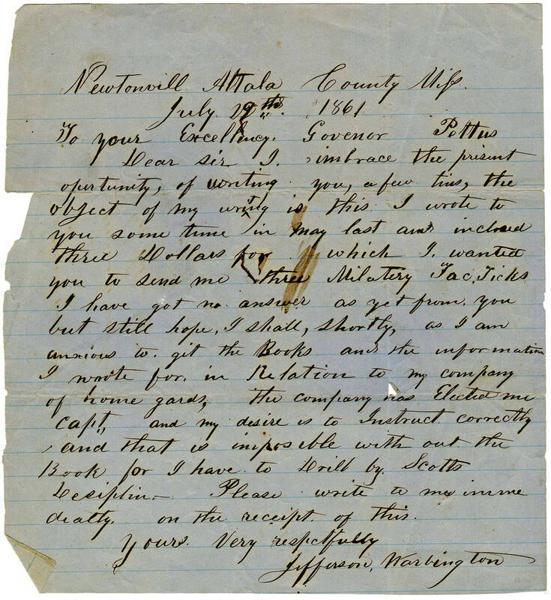 Newtonvill Attala County Miss.
July 29th 1861
To your Excellency. Govenor Pettus
Dear sir I. imbrace the present
opertunity, of writing you, a few lins, the
object of my writing is this I wrote to
you some time in may last and inclosed
three Dollars for which I wanted
you to send me three Milatery Tac,Ticks
I have got no answer as yet from you
but still hope, I shall, shortly, as I am
anxious to git the Books and the information
I wrote for in Relation to my company
of home gards, the company has Elected me
capt,, and my desire is to Instruct correctly
and that is imposible with out the
Book for I have to Drill by Scotts
Desiplin- Please write to me imme
deatly. on the receipt of this.
Yours Very respctfully
Jefferson, Warbington